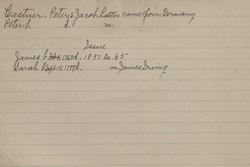 Castner. Peter & Jacob. Latter came from Germany
Peter b. d. m.
Issue
James b. 1769 d. 1851 ae. 65
Sarah b. Sept 15. 1799 d. m James Irving